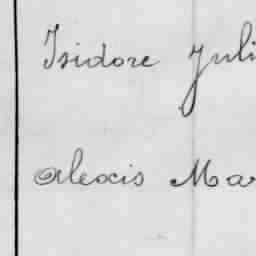 Isidore Juli
Alexis Ma